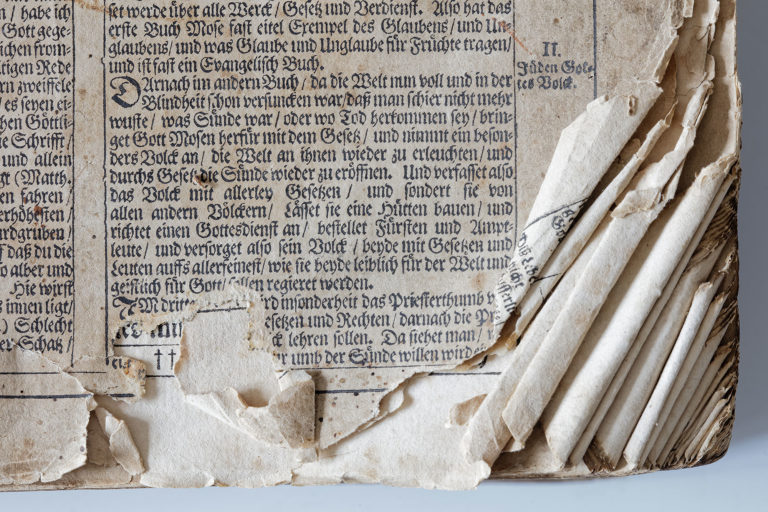 habe ich
Gott gege-
lichen from-
tigen Rede
rn zweiffele
es seyen ei-
chen Göttli-
ie Schrifft/
und allein
gt (Matth.
en fahren/
erhöhsten/
rdgruben/
ff daß du die
o alber und
Hie wirst
s innen ligt/
) Schlecht
er Schatz/
set werde über alle Werck/ Gesetz und Verdienst. Also hat das
erste Buch Mose fast eitel Exempel des Glaubens/ und Un-
glaubens/ und was Glaube und Unglaube für Früchte tragen/
und ist fast ein Evangelisch Buch.
DArnach im andern Buch/ da die Welt nun voll und in der
Blindheit schon versuncken war/ daß man schier nicht mehr
wuste/ was Sünde war/ oder wo Tod herkommen sey/ brin-
get Gott Mosen herfür mit dem Gesetz/ und nimmt ein beson-
ders Volck an/ die Welt an ihnen wieder zu erleuchten/ und
durchs Gesetz die Sünde wieder zu eröffnen. Und verfasset also
das Volck mit allerley Gesetzen/ und sondert sie von
allen andern Völckern/ Lässet sie eine Hütten bauen/ und
richtet einen Gottesdienst an/ bestellet Fürsten und Ampt-
leute/ und versorget also sein Volck/ beyde mit Gesetzen und
Leuten auffs allerfeinest/ wie sie beyde leiblich für der Welt und
geistlich für Gott regieret werden.
IM dritten wird insonderheit das Priesterthumb
esetzen und Rechten/ darnach die Pri
lehren sollen. Da siehet man/
umb der Sünde willen wird
II.
Jüden Got-
tes Volck.